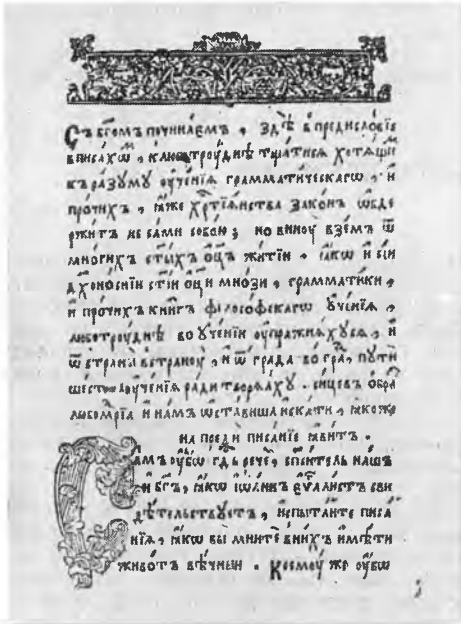 Съ бг҃омъ починаемъ, здѣ в предисловіе
вписахѡ, к люботрꙋднѣ тщатисѧ хотѧщїе
къ разꙋмꙋ оу҆ченїѧ грамматическагѡ, и҆
прочихъ, ꙗ҆же хр҃тїѧнства законъ ѡ҆бде
ржитъ не сами собою; но винꙋ вземъ ѿ
многихъ ст҃ыхъ ѻ҆ц҃ъ житїи, ꙗ҆кѡ и҆ сїи
дх҃оноснїи ст҃їи ѻ҆ц҃и мнози, грамматики,
и҆ прочихъ книгъ фїлософскагѡ оу҆ченїѧ,
люботрꙋднѣ во оу҆ченїи оу҆пражнѧхꙋсѧ, и҆
ѿ страны в странꙋ, и҆ ѿ града во гра, пꙋти
шество оу҆ченїѧ ради творѧхꙋ. сицевъ ѻ҆бра
любомꙋ҃рїа и҆ намъ ѡ҆ставиша и҆скати, ꙗ҆коже
на преди писанїе ꙗ҆витъ.
Самъ оу҆бѡ гд҃ь рече, сп҃ситель нашъ
и҆ бг҃ъ, ꙗ҆кѡ і҆ѡаннъ є҆ѵ҃алистъ сви
дѣтельствꙋетъ, и҆спытайте писа
нїѧ, ꙗ҆кѡ вы мните в нихъ и҆мѣти
живо́тъ вѣчныи. Коемꙋ же оу҆бѡ